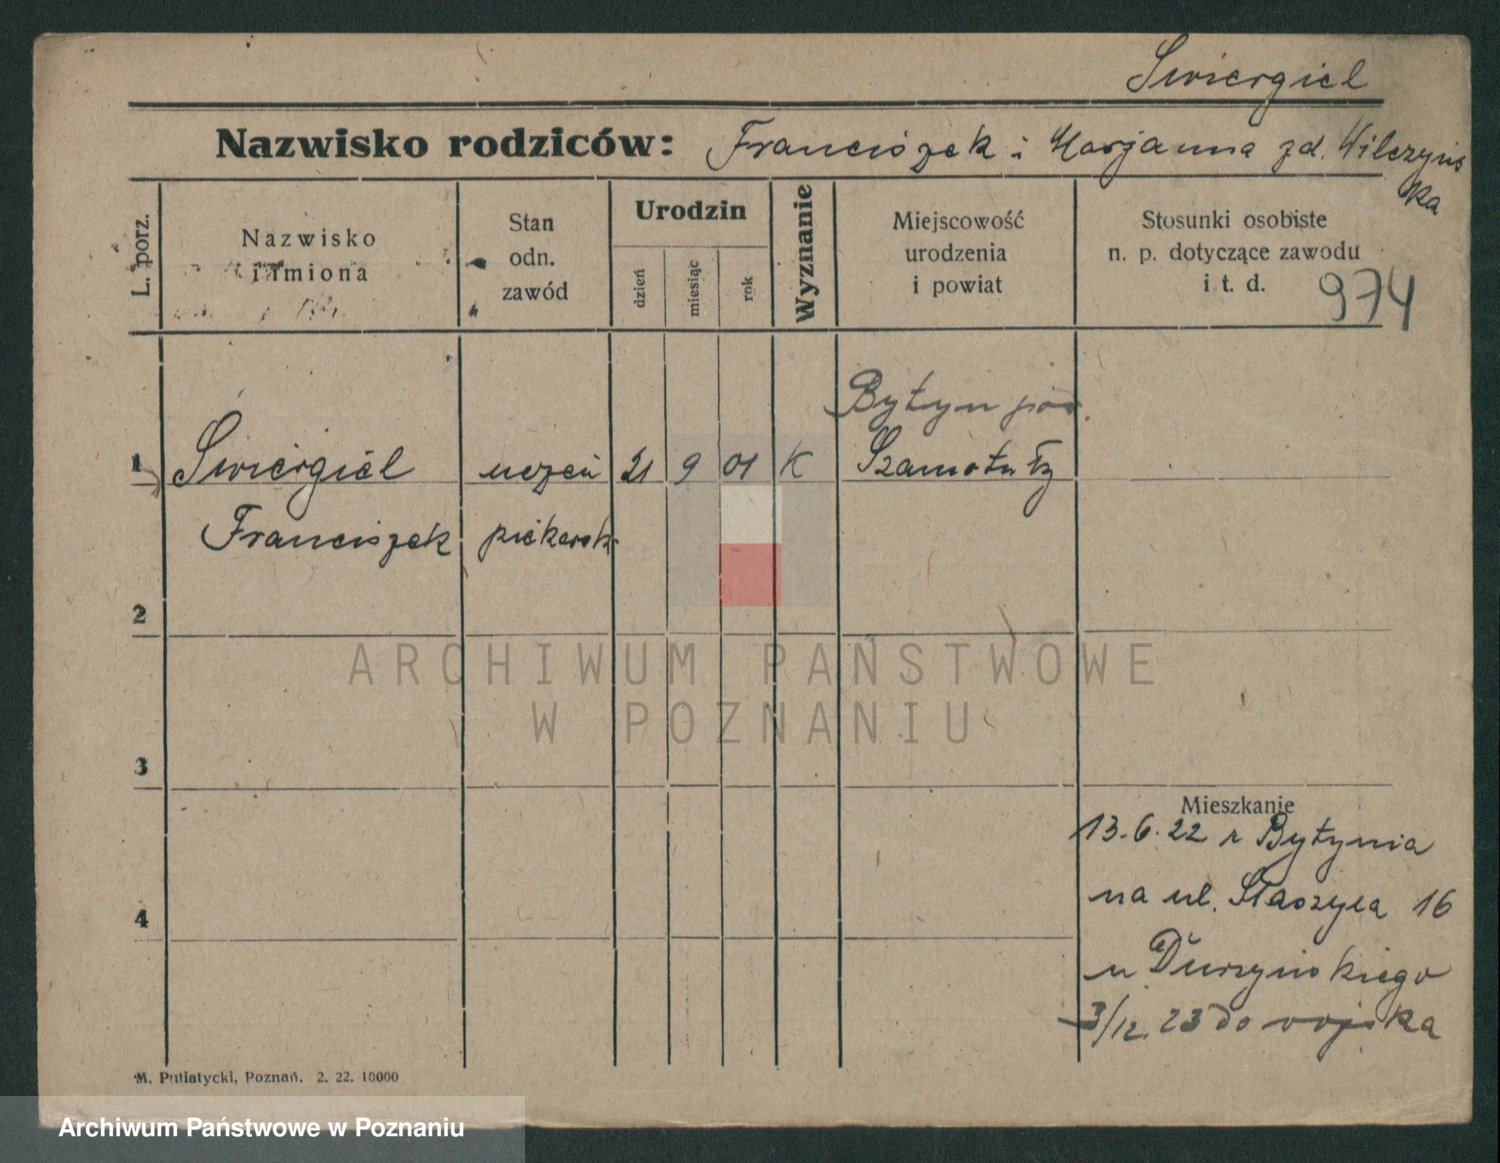 Swiergiel
Nazwisko rodziców: Franciszek i Marjanna zd. Wilczyńs
ka
L. porz.
Nazwisko
i imiona
Stan
odn.
zawód
Urodzin
dzień
miesiąc
rok
Wyznanie
Miejscowość
urodzenia
i powiat
Stosunki osobiste
n. p. dotyczące zawodu
i t. d.
974
Bytyn pow.
1 Swiergiel uczeń 21 9 01 K Szamotuły
Franciszek piekarsk.
2
ARCHIWUM PAŃSTWOWE
W POZNANIU
3
Mieszkanie
13.6.22 z Bytynia
4 na ul. Staszyca 16
u Duszyńskiego
3/12. 23 do wojska
M. Putiatycki, Poznań. 2. 22. 10000
Archiwum Państwowe w Poznaniu